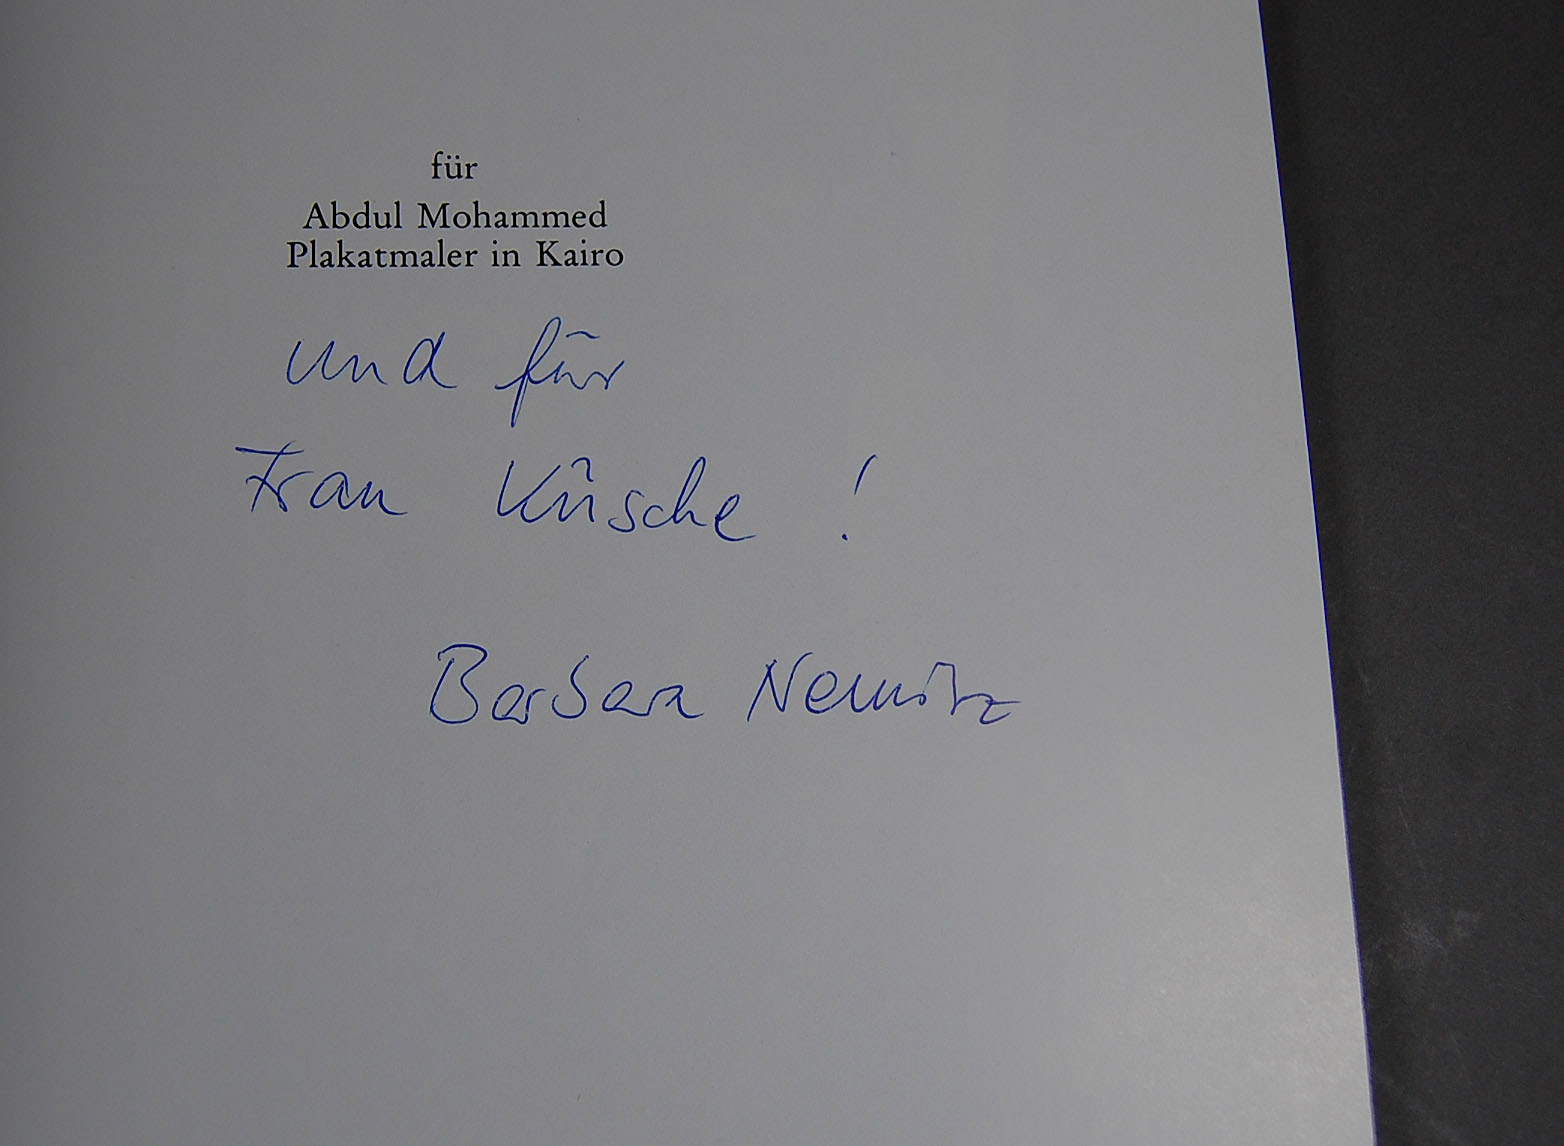 für
Abdul Mohammed
Plakatmaler in Kairo
und für
Frau Küsche !
Barbara Nemitz